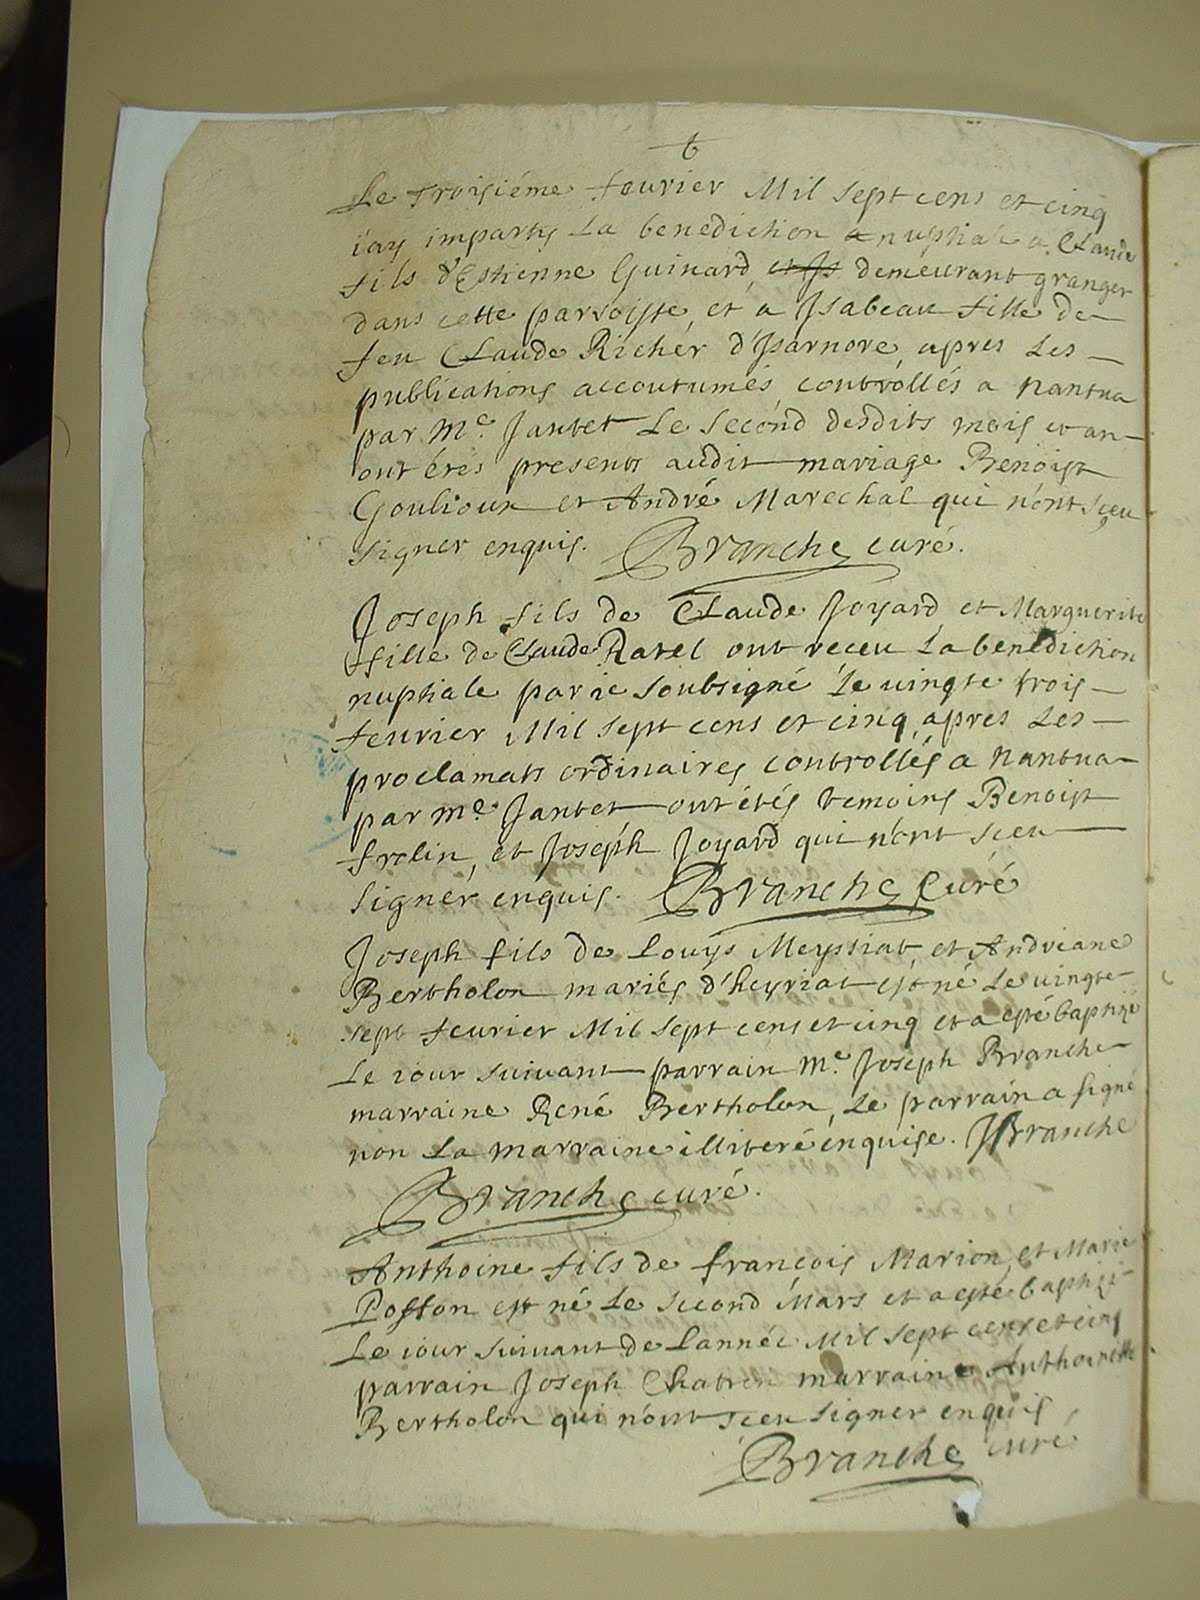 Le troisiéme feurier Mil sept cens et cinq
i'ay impartis La benediction nuptiale a Claude
fils d'Estienne Guinard demeurant granger
dans cette parroisse, et a Isabeau fille de
feu Claude Richer d'Isarnore, apres Les
publications accoutumés, controllés a nantua
par Me. Jantet Le second desdits mois et an
ont étés presents audit mariage Benoist
Goulioux et André Marechal qui n'ont sçeu
signer enquis. Branche curé.
Joseph fils de Claude Joyard, et Marguerite
fille de Claude Ravel ont receu La benediction
nuptiale par ie soubsigné Le uingte trois
feurier Mil sept cens et cinq, apres Les
proclamats ordinaires, controllés a nantua
par me. Jantet ont étés temoins Benoist
frelin, et Joseph Joyard qui n'ont sceu
signer enquis. Branche Curé
Joseph fils de Louys Meyssiat, et Andreane
Bertholon mariés d'heyriat est né Le uingte
sept feurier Mil sept cens et cinq et a esté baptizé
Le iour suiuant parrain Me. Joseph Branche
marraine René Bertholon, Le parrain a signé
non La marraine illiteré enquise. JBranche
Branche curé.
Anthoine fils de françois Marion, et Marie
est né Le second Mars et a esté baptizé
Le iour suiuant de L'année Mil sept cens et cinq
parrain Joseph marraine Anthoinette
Bertholon qui n'ont sceu signer enquis
Branche curé